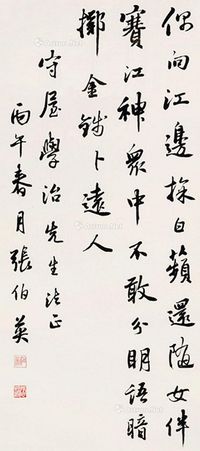 偶向江邊採白蘋還隨女伴
賽江神衆中不敢分明語暗
擲金錢卜遠人
守屋學治先生法正
丙午春月張伯英